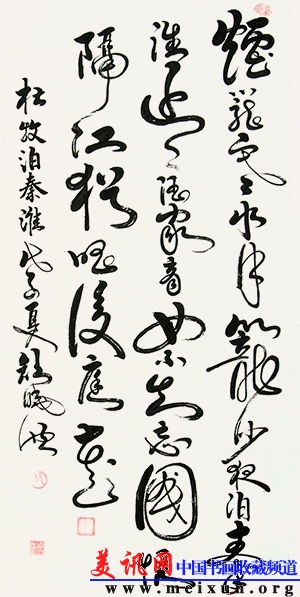 煙籠寒水月籠沙夜泊秦
淮近酒家商女不知忘國恨
隔江猶唱後庭花
杜牧泊秦淮 戊子夏
美讯网 中国书画收藏频道
www.meixun.org